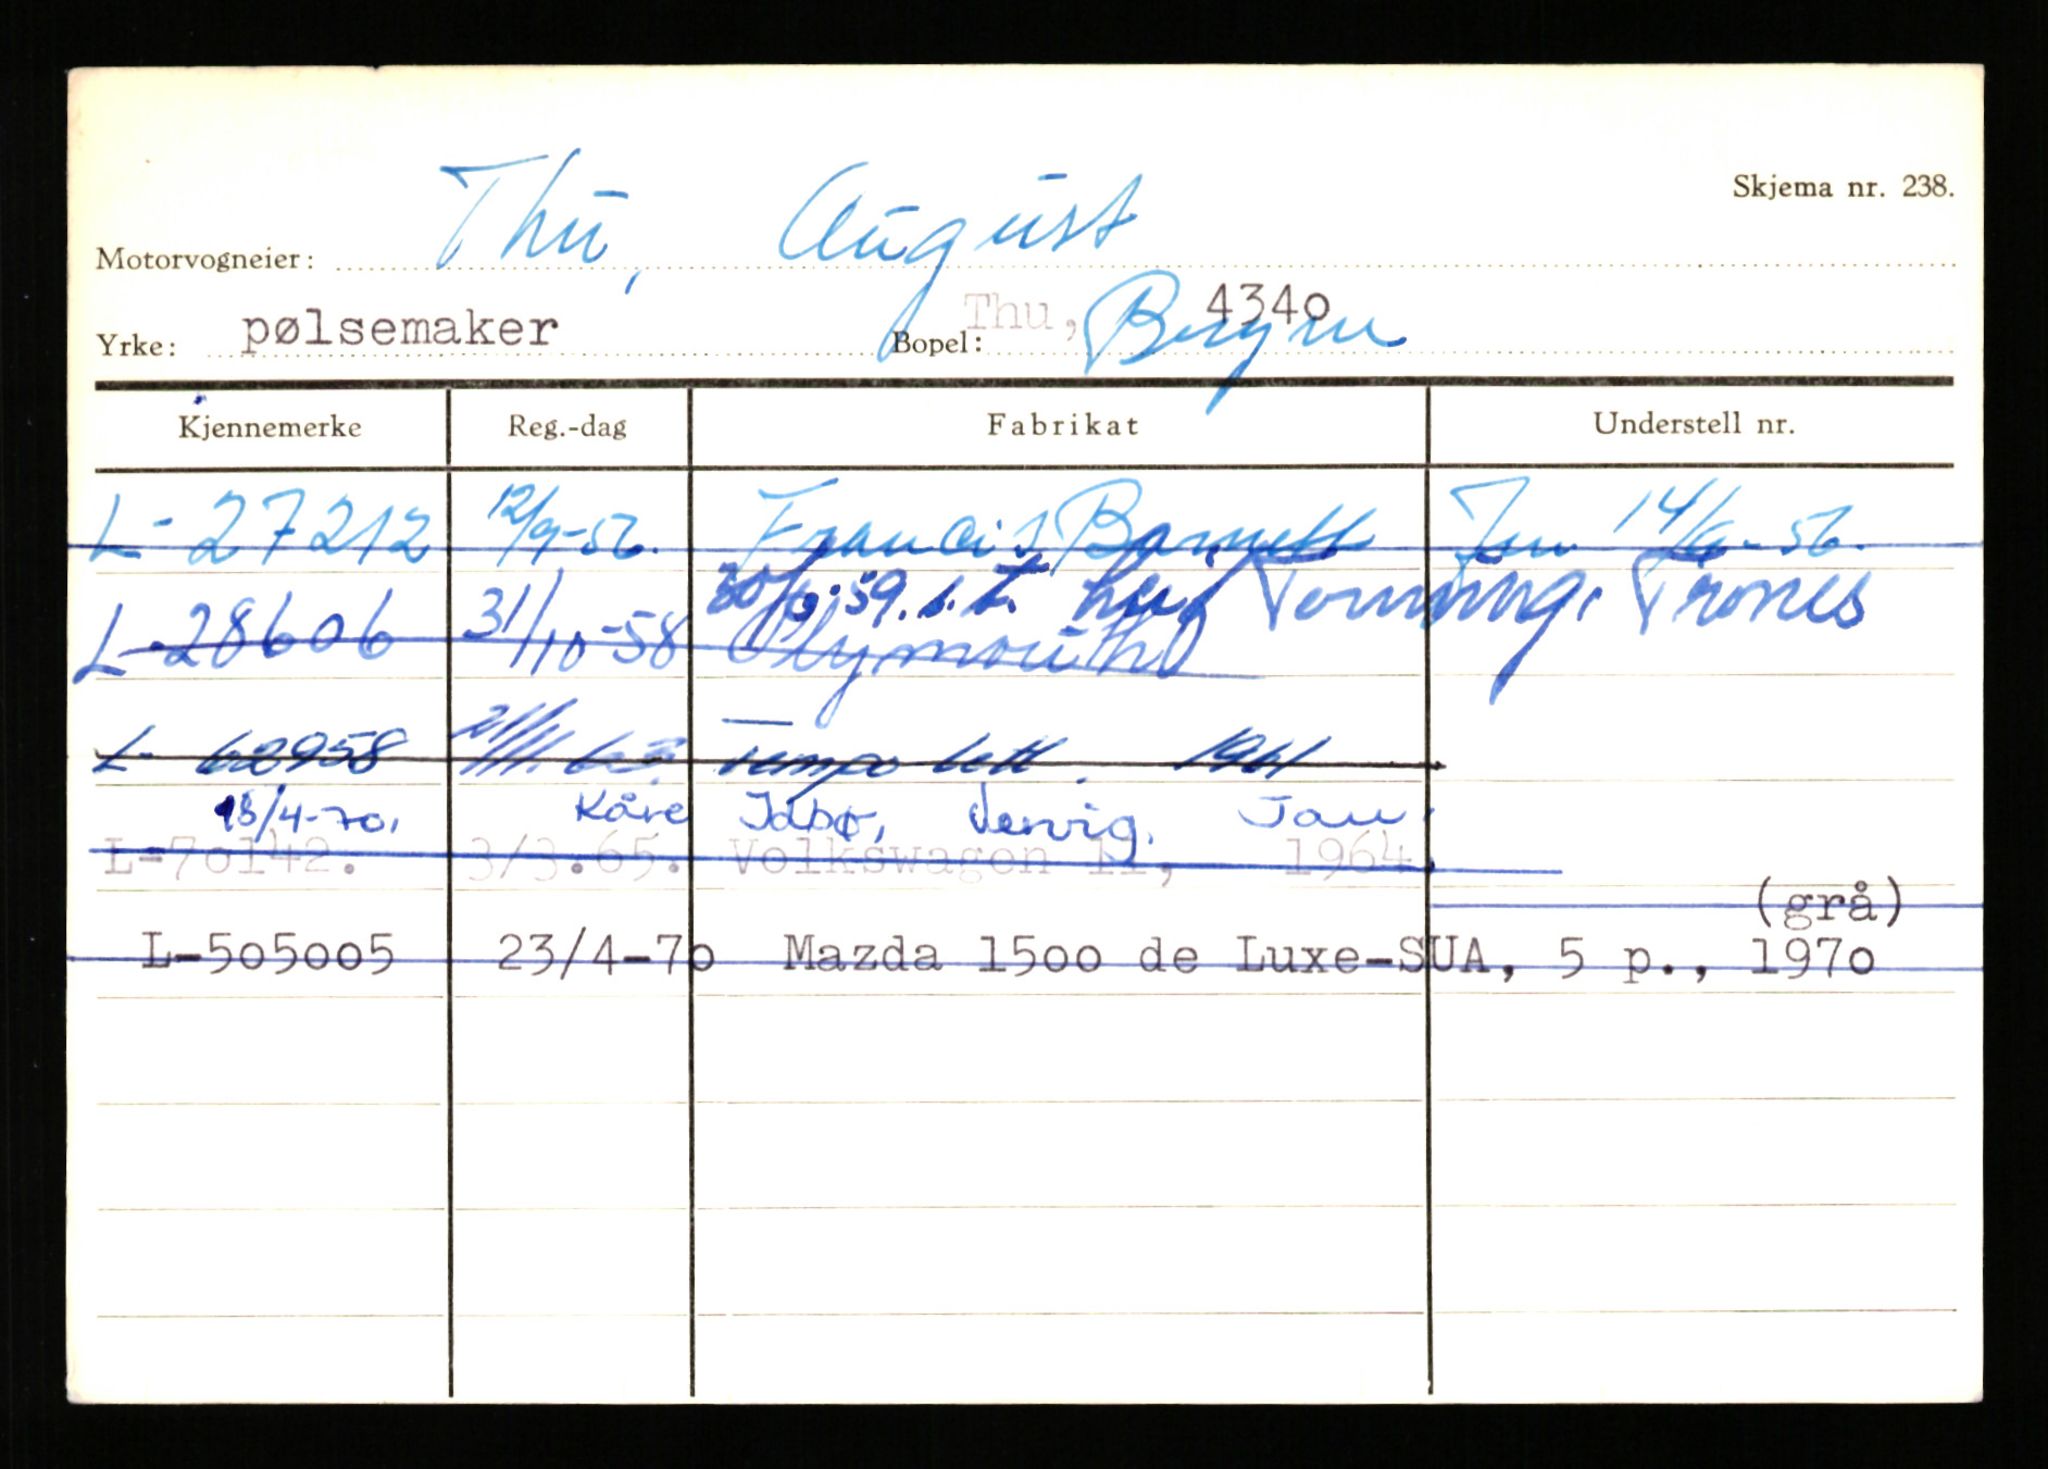 Skjema nr. 238.
Motorvogneier: Thu, August
Yrke: pølsemaker Bopel: Thu, 4340 Bryne
Kjennemerke Reg.-dag Fabrikat Understell nr.
L-27212 12/9-52. Francis Barnett 14/6-56.
30/9-59. Tonning, Trones
L-28606 31/10-58 Plymouth
L-62958 21/11 Tempo lett. 1961
18/4-70. Kåre Idbø, Vervig. Tau.
L-70142. 3/3.65. Volkswagen 11, 1964.
(grå)
L-505005 23/4-70 Mazda 1500 de Luxe-SUA, 5 p., 1970